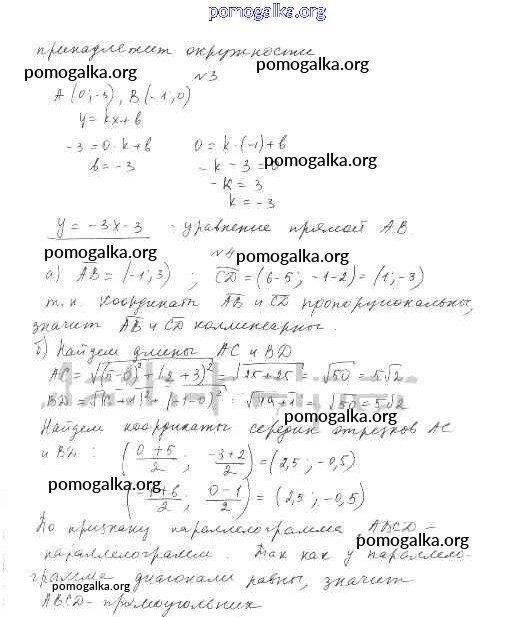 pomogalka.org
принадлежит окружности
pomogalka.org pomogalka.org
№3
A (0; -3), B(-1; 0)
y = kx + b
-3 = 0·k + b 0 = k·(-1) + b
b = -3 -k - 3 = 0
pomogalka.org
-k = 3
k = -3
y = -3x - 3 - уравнение прямой AB.
pomogalka.org №4 pomogalka.org
а) AB = (-1; 3); CD = (6-5; -1-2) = (1; -3)
т.к. координаты AB и CD пропорциональны,
значит AB и CD коллинеарны.
pomogalka.org
б) Найдем длины AC и BD
AC = √(5-0)² + (2+3)² = √25+25 = √50 = 5√2
BD = √(6+1)² + (-1-0)² = √49+1 = √50 = 5√2
pomogalka.org
Найдем координаты середин отрезков AC
и BD: (0+5/2; -3+2/2) = (2,5; -0,5)
pomogalka.org
(-1+6/2; 0-1/2) = (2,5; -0,5)
По признаку параллелограмма ABCD -
pomogalka.org
параллелограмм. Так как у параллело-
грамма диагонали равны, значит
pomogalka.org
ABCD - прямоугольник